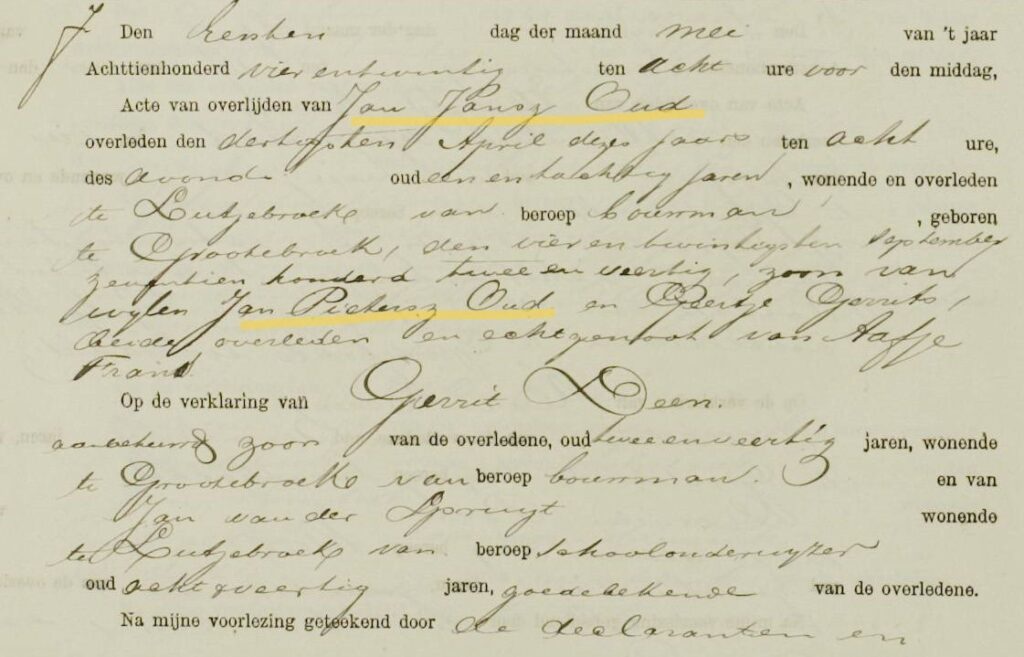 Den Eersten dag der maand mei van 't jaar
Achttienhonderd vier en twintig ten acht ure voor den middag,
Acte van overlijden van Jan Jansz Oud
overleden den dertigsten April dezes jaars ten acht ure,
des avonds oud een en tachtig jaren, wonende en overleden
te Lutjebroek van beroep bouwman, geboren
te Grootebroek, den vier en twintigsten september
zeventien honderd twee en veertig, zoon van
wylen Jan Pietersz Oud en Geertje Gerrits,
beide overleden en echtgenoot van Aafje
Frans
Op de verklaring van Gerrit Deen.
aabehuwd zoon van de overledene, oud twee en veertig jaren, wonende
te Grootebroek van beroep bouwman. en van
Jan van der Spruyt wonende
te Lutjebroek van beroep schoolonderwyzer
oud acht & veertig jaren, goede bekende van de overledene.
Na mijne voorlezing geteekend door de declaranten en